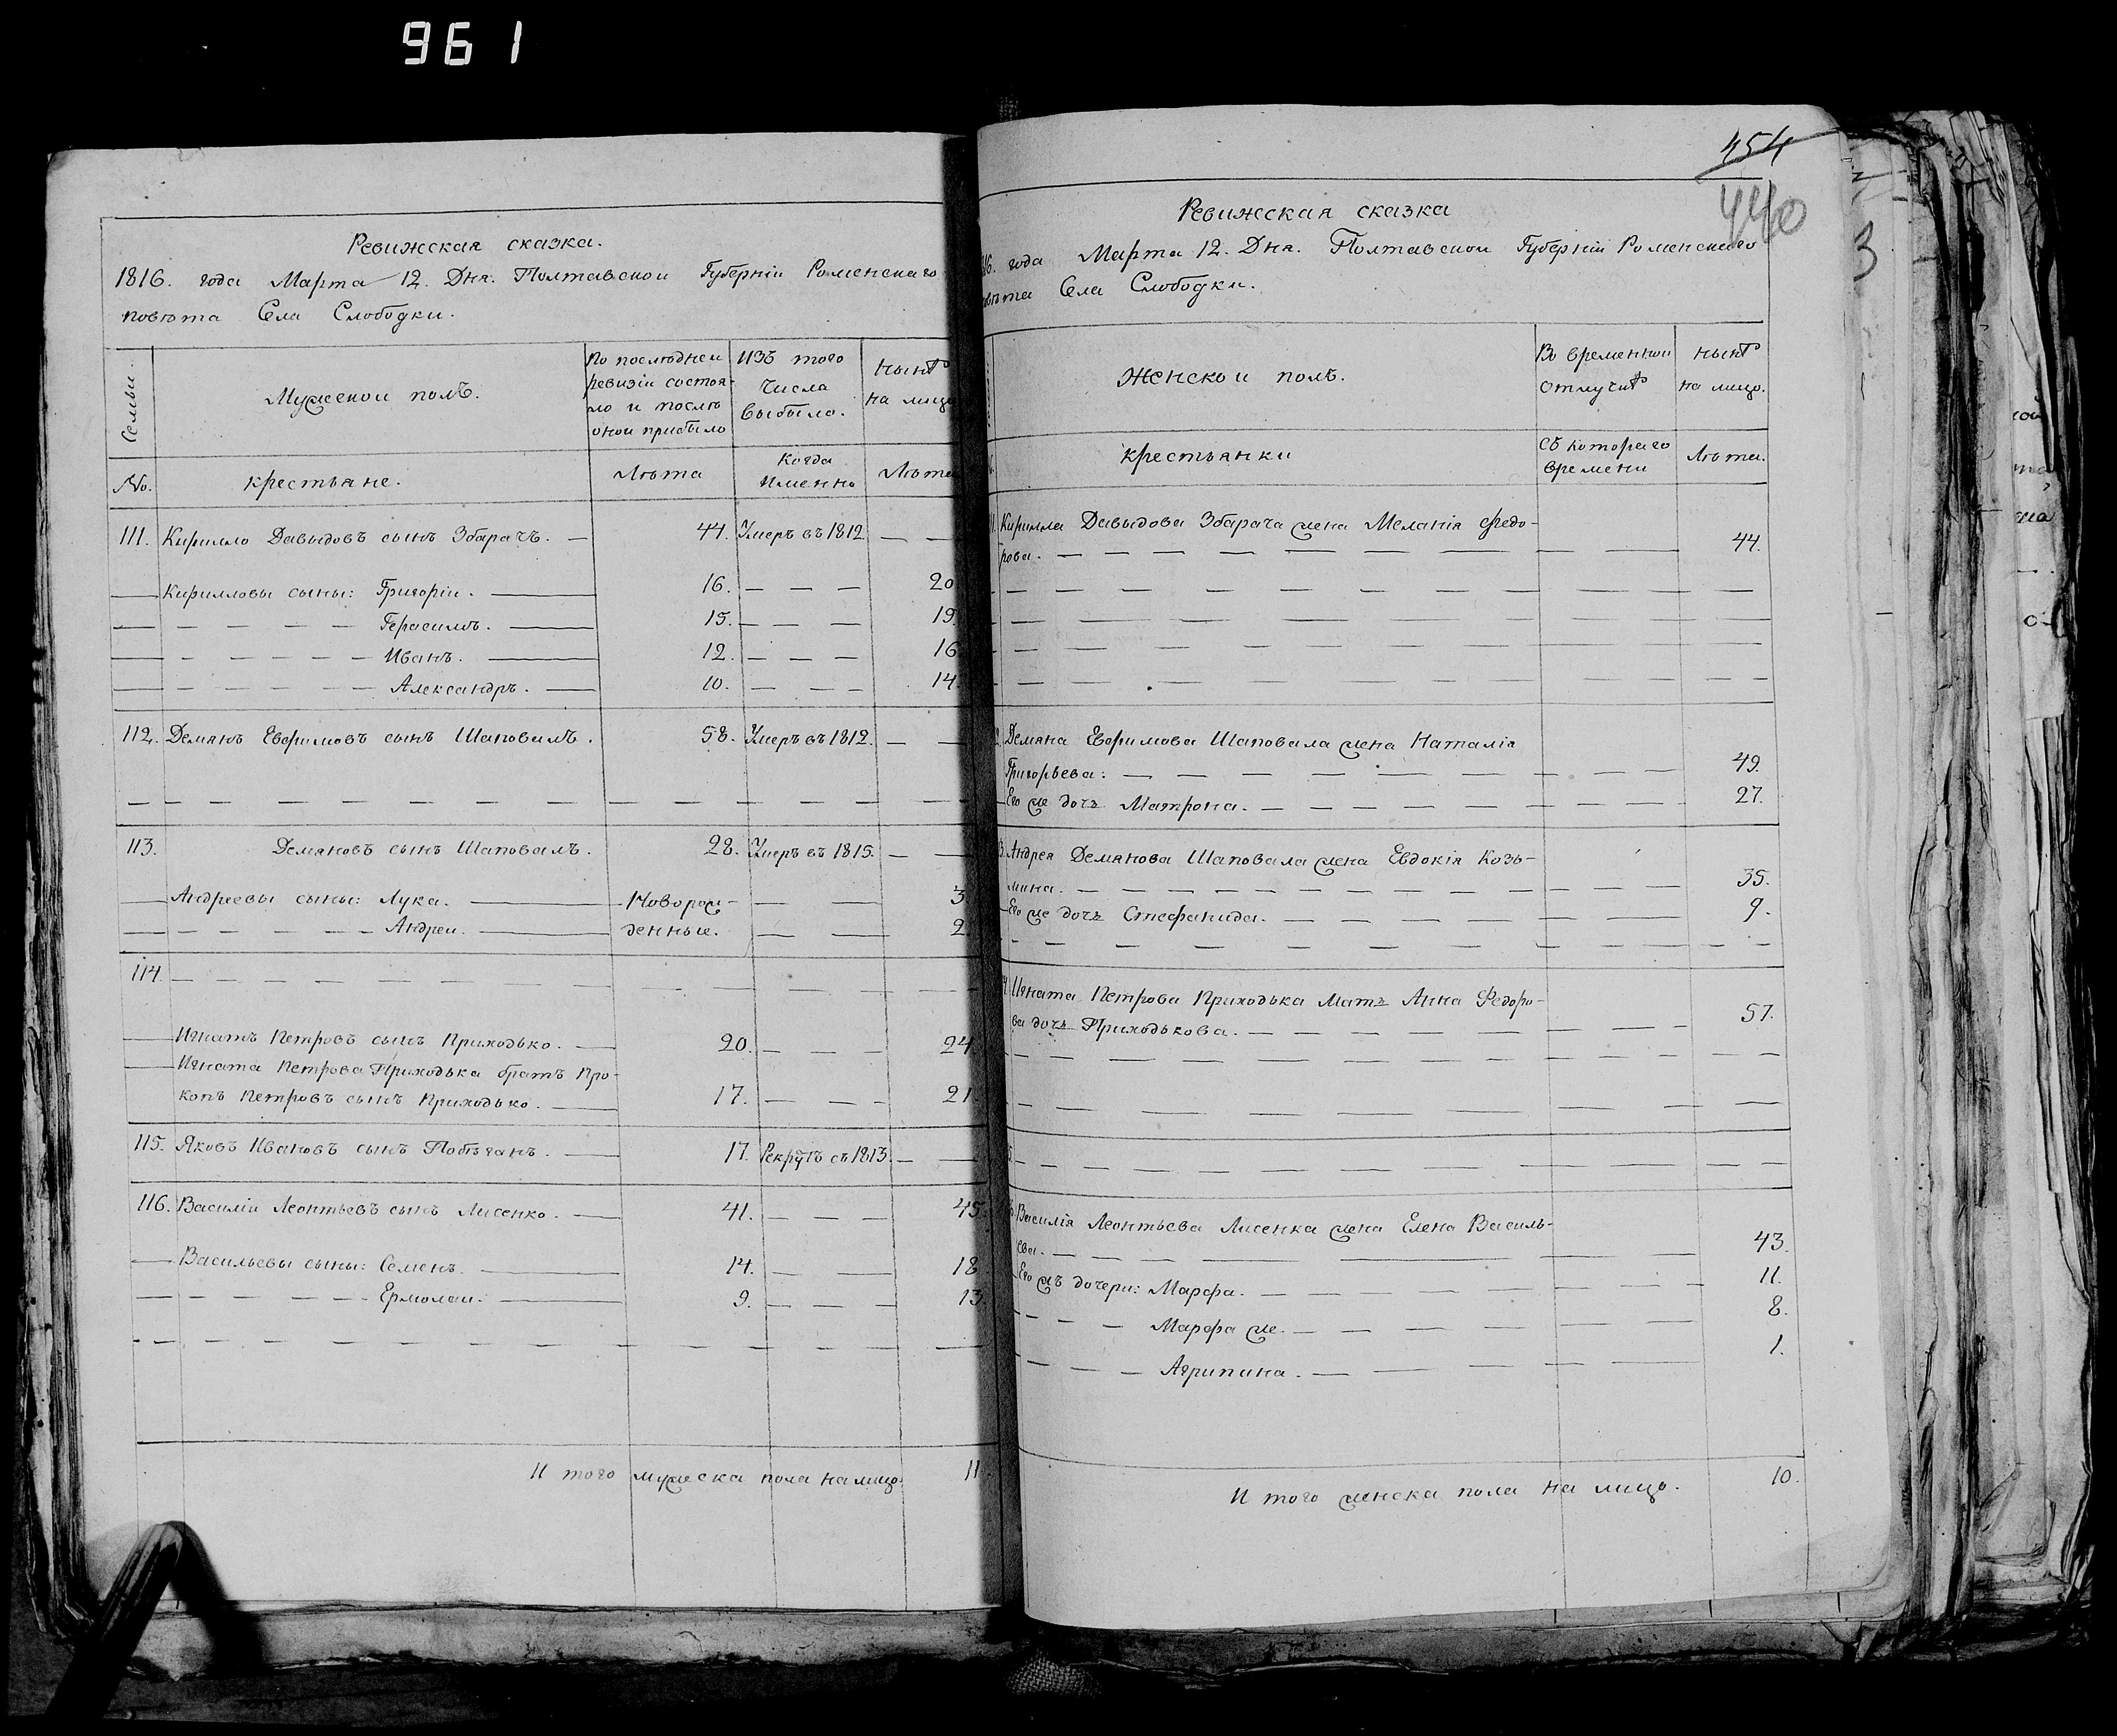 961
Ревижская сказка.
1816. года Марта 12. Дня. Полтавской Губерніи Роменскаго
повѣта Села Слободки.
Семьи.
Мужеской полъ.
По последней
ревизіи состоя-
ло и послѣ
оной прибыло
Изъ того
числа
выбыло.
Нынѣ
на лицо
No.
крестьяне.
Лѣта
Когда
Именно
Лѣта
111. Кирилло Давыдовъ сынъ Збарачъ. 44. Умеръ въ 1812
Кирилловы сыны: Григорій. 16. 20
Герасимъ. 15. 19.
Иванъ. 12. 16
Александръ. 10. 14.
112. Демянъ Евфимовъ сынъ Шаповалъ. 58. Умеръ въ 1812.
113. Демяновъ сынъ Шаповалъ. 28. Умеръ въ 1815.
Андреевы сыны: Лука. Новорож- 3.
Андрей. денные. 2.
114.
Игнатъ Петровъ сынъ Приходько. 20. 24.
Игната Петрова Приходька братъ Про-
копъ Петровъ сынъ Приходько. 17. 21.
115. Яковъ Ивановъ сынъ Побѣганъ. 17. Рекрутъ съ 1813.
116. Василій Леонтьевъ сынъ Лисенко. 41. 45.
Васильевы сыны: Семенъ. 14. 18.
Ермолай. 9. 13.
И того мужеска пола налицо. 11.
454
440
Ревижская сказка
года Марта 12. Дня. Полтавской Губерніи Роменскаго
Села Слободки.
Женской полъ.
Во временной
отлучкѣ
нынѣ
на лицо.
крестьянки
Съ котораго
времени
Лѣта.
Кирилла Давыдова Збарача жена Меланія Федо-
рова. 44.
Демяна Евфимова Шаповала жена Наталія
Григорьева: 49.
Его же дочь Матрона. 27.
Андрея Демянова Шаповала жена Евдокія Козь-
мина. 35.
Его же дочь Стефанида. 9.
Игната Петрова Приходька Мать Анна Федоро-
ва дочь Приходькова. 57.
Василія Леонтьева Лисенка жена Елена Василь-
ева. 43.
Его жъ дочери: Марфа. 11.
Марфа же. 8.
Агрипина. 1.
И того женска пола на лицо. 10.
3